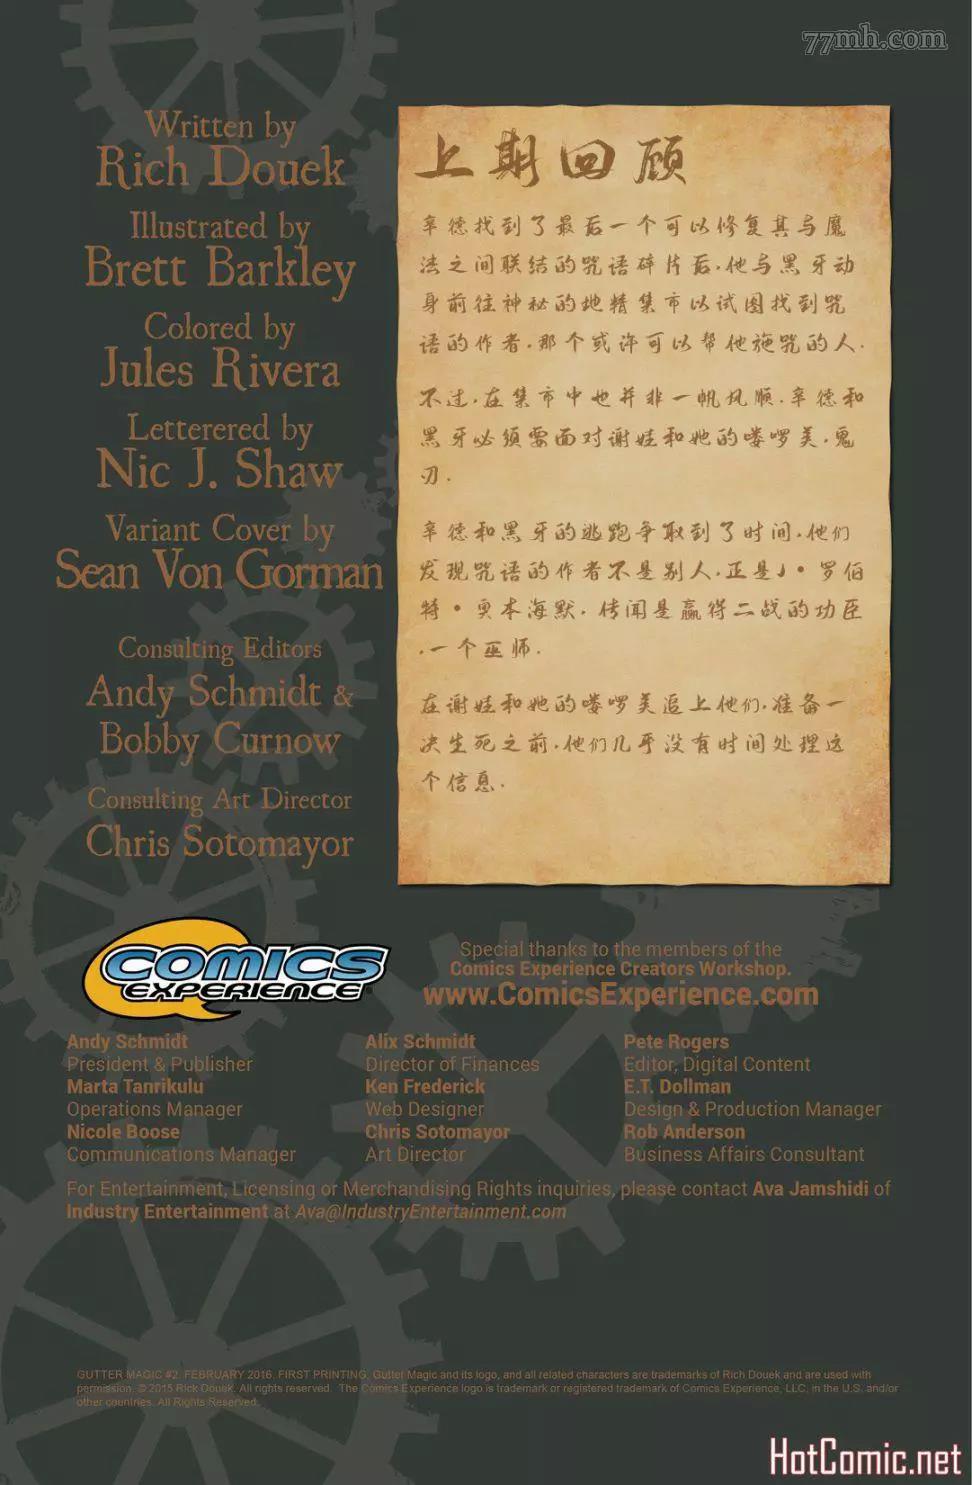 77mh.com
Written by
Rich Douek
Illustrated by
Brett Barkley
Colored by
Jules Rivera
Letterered by
Nic J. Shaw
Variant Cover by
Sean Von Gorman
Consulting Editors
Andy Schmidt &
Bobby Curnow
Consulting Art Director
Chris Sotomayor
上期回顾
辛德找到了最后一个可以修复其与魔
法之间联结的咒语碎片后，他与黑牙动
身前往神秘的地精集市以试图找到咒
语的作者，那个或许可以帮他施咒的人.
不过，在集市中也并非一帆风顺，辛德和
黑牙必须需面对谢娃和她的喽啰美，鬼
刃.
辛德和黑牙的逃跑争取到了时间，他们
发现咒语的作者不是别人，正是J・罗伯
特・奥本海默，传闻是赢得二战的功臣
，一个巫师.
在谢娃和她的喽啰美追上他们，准备一
决生死之前，他们几乎没有时间处理这
个信息.
COMICS
EXPERIENCE®
Special thanks to the members of the
Comics Experience Creators Workshop.
www.ComicsExperience.com
Andy Schmidt
President & Publisher
Marta Tanrikulu
Operations Manager
Nicole Boose
Communications Manager
Alix Schmidt
Director of Finances
Ken Frederick
Web Designer
Chris Sotomayor
Art Director
Pete Rogers
Editor, Digital Content
E.T. Dollman
Design & Production Manager
Rob Anderson
Business Affairs Consultant
For Entertainment, Licensing or Merchandising Rights inquiries, please contact Ava Jamshidi of
Industry Entertainment at Ava@IndustryEntertainment.com
GUTTER MAGIC #2. FEBRUARY 2016. FIRST PRINTING. Gutter Magic and its logo, and all related characters are trademarks of Rich Douek and are used with
permission. © 2015 Rick Douek. All rights reserved. The Comics Experience logo is trademark or registered trademark of Comics Experience, LLC, in the U.S. and/or
other countries. All Rights Reserved.
HotComic.net